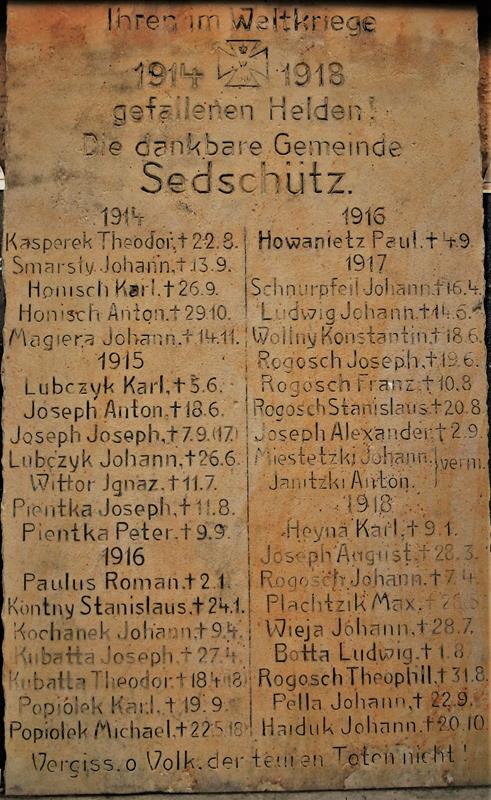 Ihren im Weltkriege
1914 1918
gefallenen Helden!
Die dankbare Gemeinde
Sedschütz.
1914
Kasperek Theodor.† 22.8.
Smarsly Johann.† 13.9.
Honisch Karl.† 26.9.
Honisch Anton.† 29.10.
Magiera Johann.† 14.11.
1915
Lubczyk Karl.† 5.6.
Joseph Anton.† 18.6.
Joseph Joseph.† 7.9.(17)
Lubczyk Johann.† 26.6.
Wittor Jgnaz.† 11.7.
Pientka Joseph.† 11.8.
Pientka Peter.† 9.9.
1916
Paulus Roman.† 2.1.
Kontny Stanislaus.† 24.1.
Kochanek Johann.† 9.4.
Kubatta Joseph.† 27.4.
Kubatta Theodor.† 18.4.(18)
Popiolek Karl.† 19.9.
Popiolek Michael.† 22.5.18
1916
Howanietz Paul.† 4.9.
1917
Schnurpfeil Johann.† 16.4.
Ludwig Johann.† 14.6.
Wollny Konstantin.† 18.6.
Rogosch Joseph.† 19.6.
Rogosch Franz.† 10.8
Rogosch Stanislaus.† 20.8
Joseph Alexander.† 2.9.
Miestetzki Johann. } verm.
Janitzki Anton.
1918
Heyna Karl.† 9.1.
Joseph August.† 28.3.
Rogosch Johann.† 7.4.
Plachtzik Max.†
Wieja Johann.† 28.7.
Botta Ludwig.† 1.8.
Rogosch Theophil.† 31.8.
Pella Johann.† 22.9.
Haiduk Johann.† 20.10.
Vergiss. o Volk. der teuren Toten nicht!